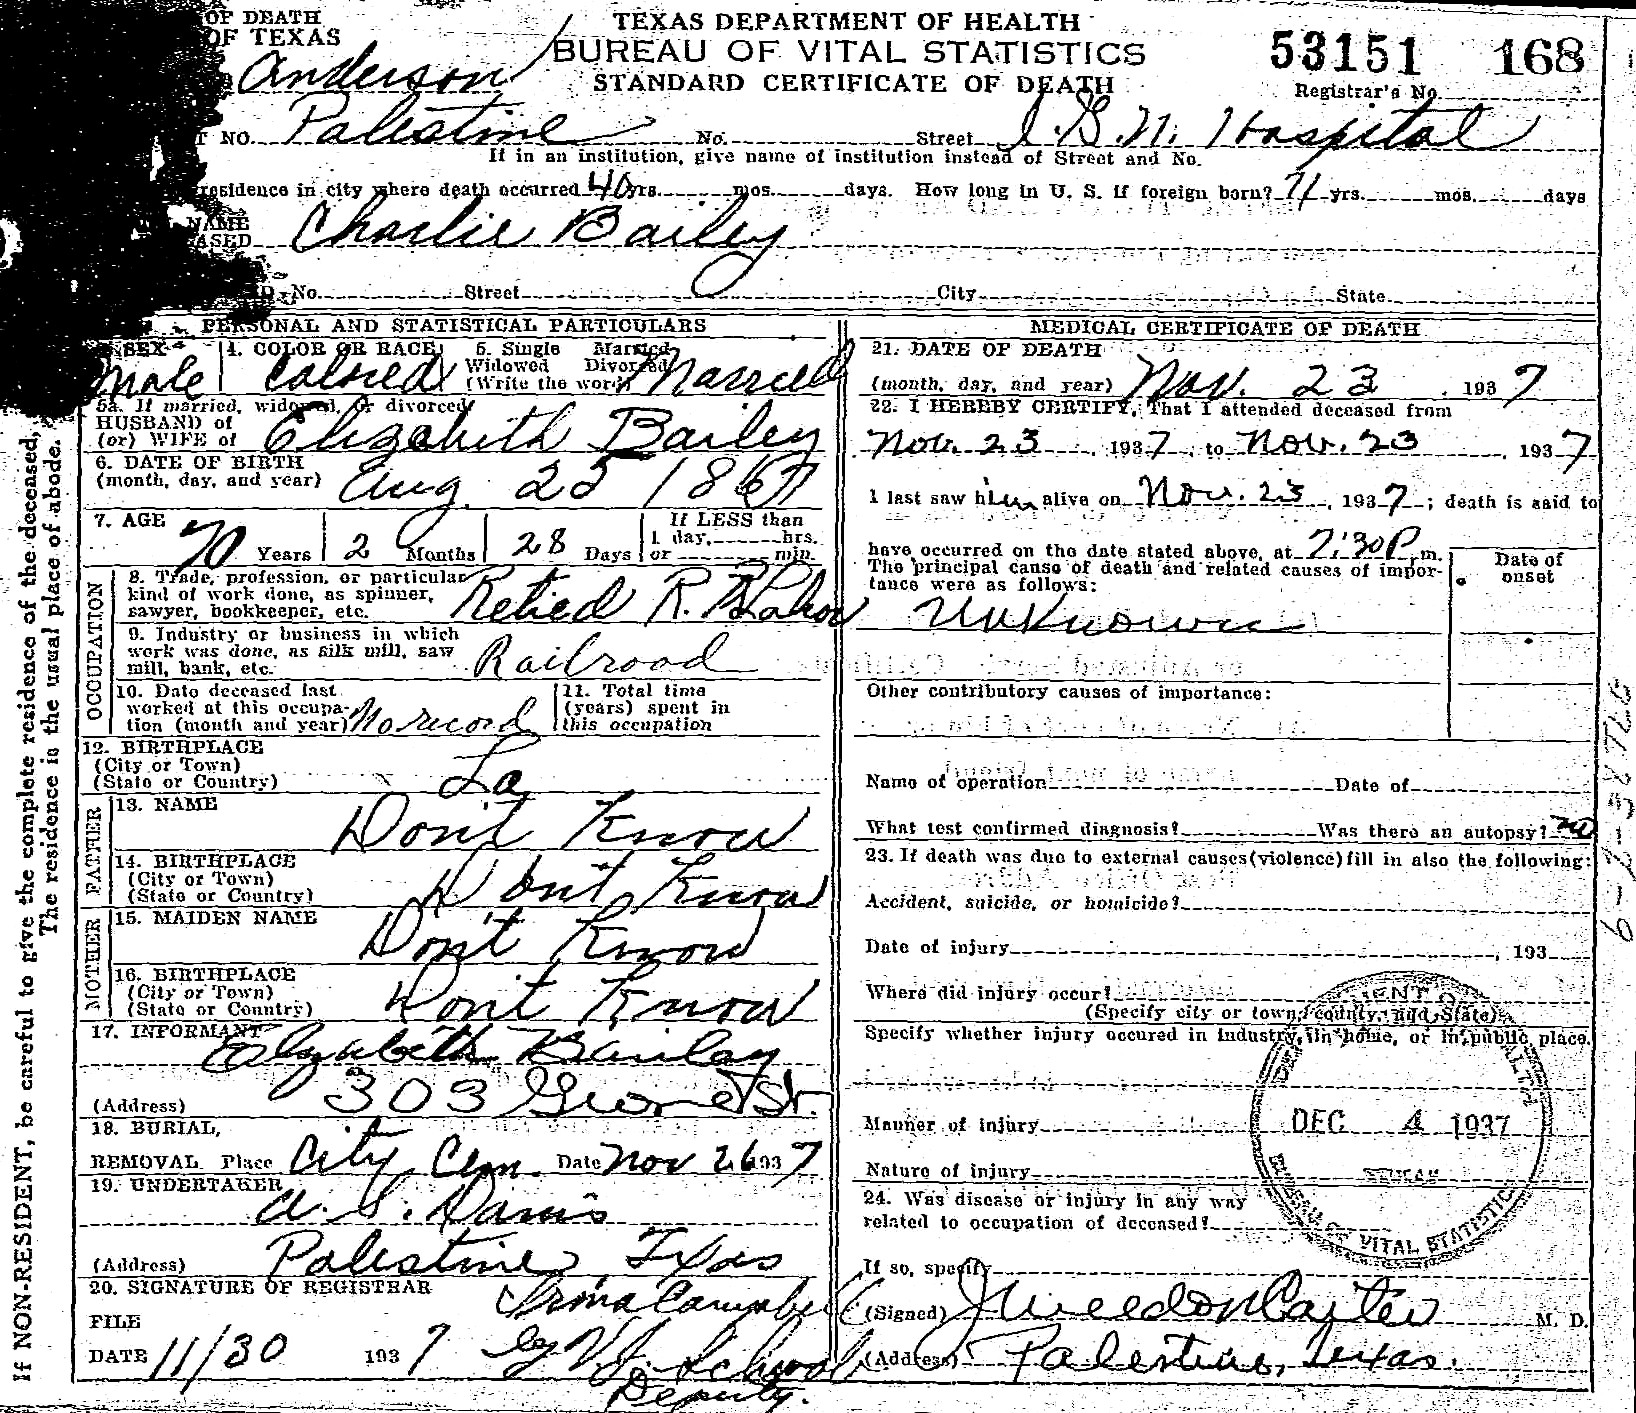 OF DEATH
OF TEXAS
TEXAS DEPARTMENT OF HEALTH
BUREAU OF VITAL STATISTICS
STANDARD CERTIFICATE OF DEATH
53151 168
Registrar's No.
Anderson
T NO. Palestine No. Street I. G. N. Hospital
If in an institution, give name of institution instead of Street and No.
residence in city where death occurred 40 yrs. mos. days. How long in U. S. if foreign born? 71 yrs. mos. days
NAME
ASED Charlie Bailey
D. No. Street City State
PERSONAL AND STATISTICAL PARTICULARS
SEX Male
4. COLOR OR RACE Colored
5. Single Married
Widowed Divorced
(Write the word) Married
5a. If married, widowed, or divorced
HUSBAND of
(or) WIFE of Elizabeth Bailey
6. DATE OF BIRTH
(month, day, and year) Aug. 25 1867
7. AGE 70 Years 2 Months 28 Days
If LESS than
1 day, hrs.
or min.
OCCUPATION
8. Trade, profession, or particular
kind of work done, as spinner,
sawyer, bookkeeper, etc. Retied R. R Labor
9. Industry or business in which
work was done, as silk mill, saw
mill, bank, etc. Railroad
10. Date deceased last
worked at this occupa-
tion (month and year) No record
11. Total time
(years) spent in
this occupation
12. BIRTHPLACE
(City or Town)
(State or Country) La
FATHER
13. NAME Don't Know
14. BIRTHPLACE
(City or Town)
(State or Country) Don't Know
MOTHER
15. MAIDEN NAME Don't Know
16. BIRTHPLACE
(City or Town)
(State or Country) Don't Know
17. INFORMANT Elizabeth Bailey
(Address) 303 St.
18. BURIAL,
REMOVAL Place City Cem. Date Nov 26 1937
19. UNDERTAKER
A. S. Davis
(Address) Palestine, Texas
20. SIGNATURE OF REGISTRAR
Irma Campbell
FILE
DATE 11/30 1937 by
Deputy.
MEDICAL CERTIFICATE OF DEATH
21. DATE OF DEATH
(month, day, and year) Nov. 23, 1937
22. I HEREBY CERTIFY, That I attended deceased from
Nov. 23, 1937, to Nov. 23, 1937
I last saw him alive on Nov. 23, 1937; death is said to
have occurred on the date stated above, at 7:30 P.m.
The principal cause of death and related causes of impor-
tance were as follows:
Date of
onset
Unknown
Other contributory causes of importance:
Name of operation Date of
What test confirmed diagnosis? Was there an autopsy? no
23. If death was due to external causes (violence) fill in also the following:
Accident, suicide, or homicide?
Date of injury , 193
Where did injury occur?
(Specify city or town, county, and State)
Specify whether injury occured in industry, in home, or in public place.
Manner of injury
Nature of injury
24. Was disease or injury in any way
related to occupation of deceased?
If so, specify
(Signed) J Weedon Carter M. D.
(Address) Palestine, Texas.
DEC 4 1937
BUREAU OF VITAL STATISTICS
If NON-RESIDENT, be careful to give the complete residence of the deceased,
The residence is the usual place of abode.